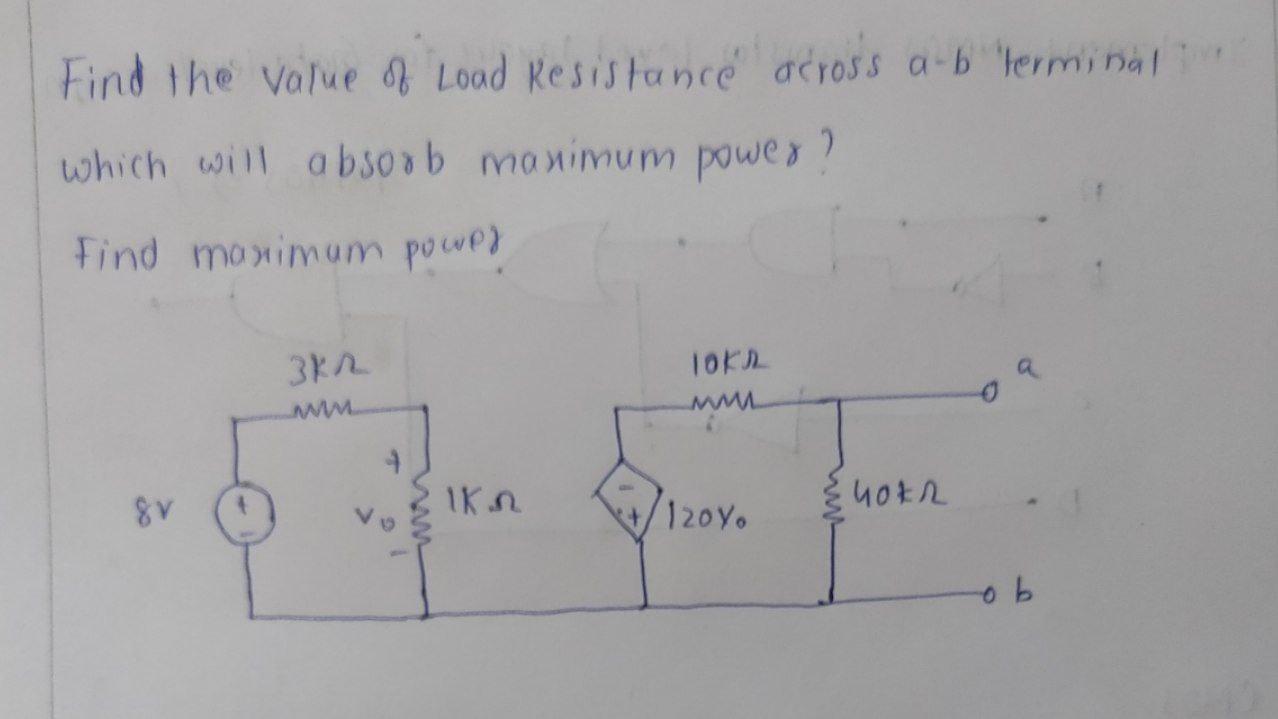 Find the value of Load Resistance across a-b terminal
which will absorb maximum power?
Find maximum power
3KΩ
10KΩ
a
+
8V
+
-
V0
-
1KΩ
-
+
120V0
40kΩ
b